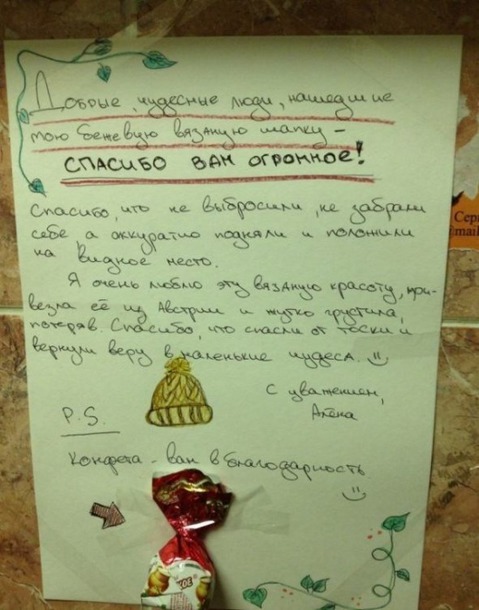 Добрые, чудесные люди, нашедшие
мою бежевую вязаную шапку –
СПАСИБО ВАМ ОГРОМНОЕ!
Спасибо, что не выбросили, не забрали
себе а аккуратно подняли и положили
на видное место.
Я очень люблю эту вязаную красоту, при-
везла её из Австрии и жутко грустила,
потеряв. Спасибо, что спасли от тоски и
вернули веру в маленькие чудеса. :)
С уважением,
Алёна
P.S.
Конфета – вам в благодарность
:)
Сер
Email